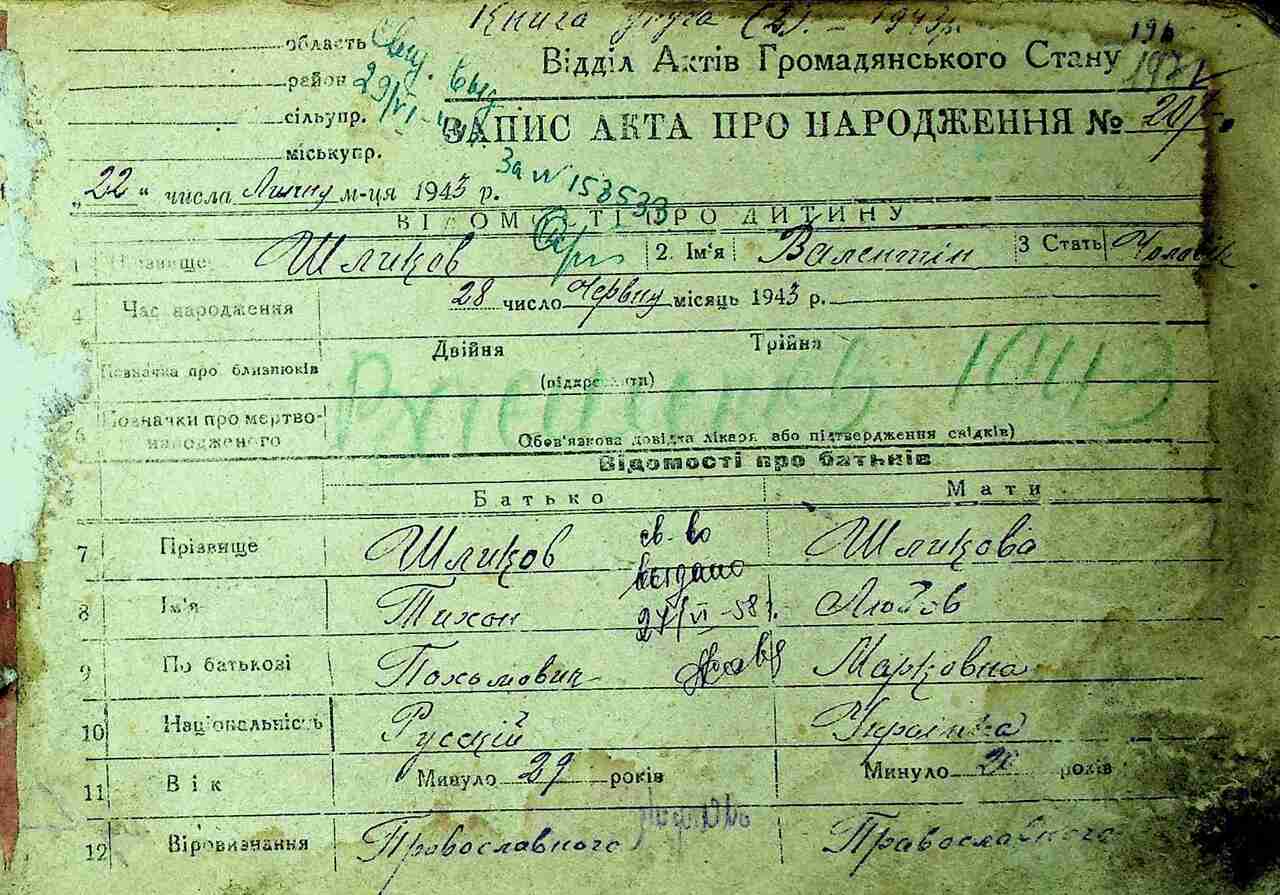 Книга друга (2). - 1943р.
196
область
Відділ Актів Громадянського Стану
район
29/VI
сільупр.
ЗАПИС АКТА ПРО НАРОДЖЕННЯ №
міськупр.
За № 153533
"22" числа Липня м-ця 1943 р.
ВІДОМОСТІ ПРО ДИТИНУ
1 Прізвище Шликов 2. Ім'я Валентін 3 Стать Чоловік
4 Час народження 28 число Червня місяць 1943 р.
Двійня Трійня
Позначка про близнюків
(підкреслити)
1943
6 Позначки про мертво-
народженого
Обов'язкова довідка лікаря або підтвердження свідків)
Відомості про батьків
Батько Мати
7 Прізвище Шликов Шликова
св-во
выдано
8 Ім'я Тихон Любов
27/VI-58г.
9 По батькові Пахомович Марковна
10 Національність Русскій Українка
11 Вік Минуло 29 років Минуло років
12 Віровизнання Православного Православного